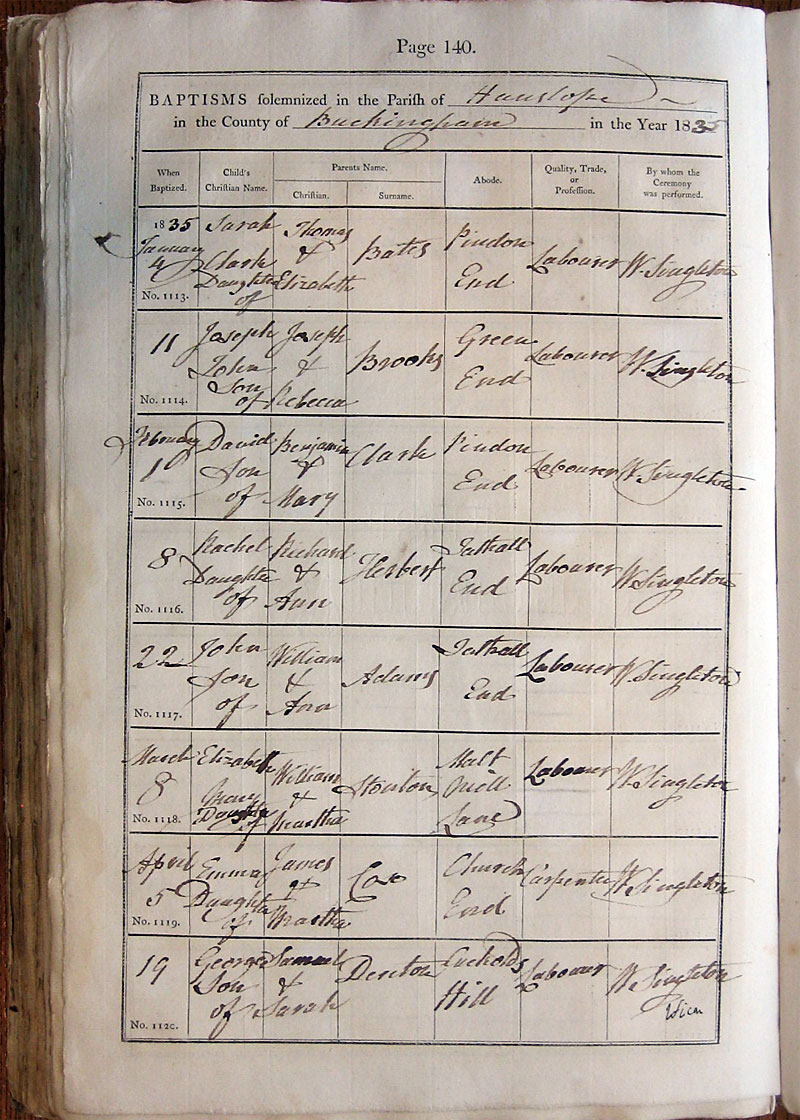 Page 140.
BAPTISMS solemnized in the Parish of Hanslope
in the County of Buckingham in the Year 1835
When Baptized. Child's Christian Name. Parents Name. Christian. Surname. Abode. Quality, Trade, or Profession. By whom the Ceremony was performed.
1835 January 4 No. 1113. Sarah Clark Daughter of Thomas & Elizabeth Bates Pindon End Labourer W. Singleton
11 No. 1114. Joseph John Son of Joseph & Rebecca Brooks Green End Labourer W. Singleton
February 1 No. 1115. David Son of Benjamin & Mary Clark Pindon End Labourer W. Singleton
8 No. 1116. Rachel Daughter of Richard & Ann Herbert Tathall End Labourer W. Singleton
22 No. 1117. John Son of William & Ann Adams Tathall End Labourer W. Singleton
March 8 No. 1118. Elizabeth Mary Daughter of William & Martha Malt Mill Lane Labourer W. Singleton
April 5 No. 1119. Emma Daughter of James & Martha Cox Church End Carpenter W. Singleton
19 No. 1120. George Son of Samuel & Sarah Denton Cuckolds Hill Labourer W. Singleton
Vicar